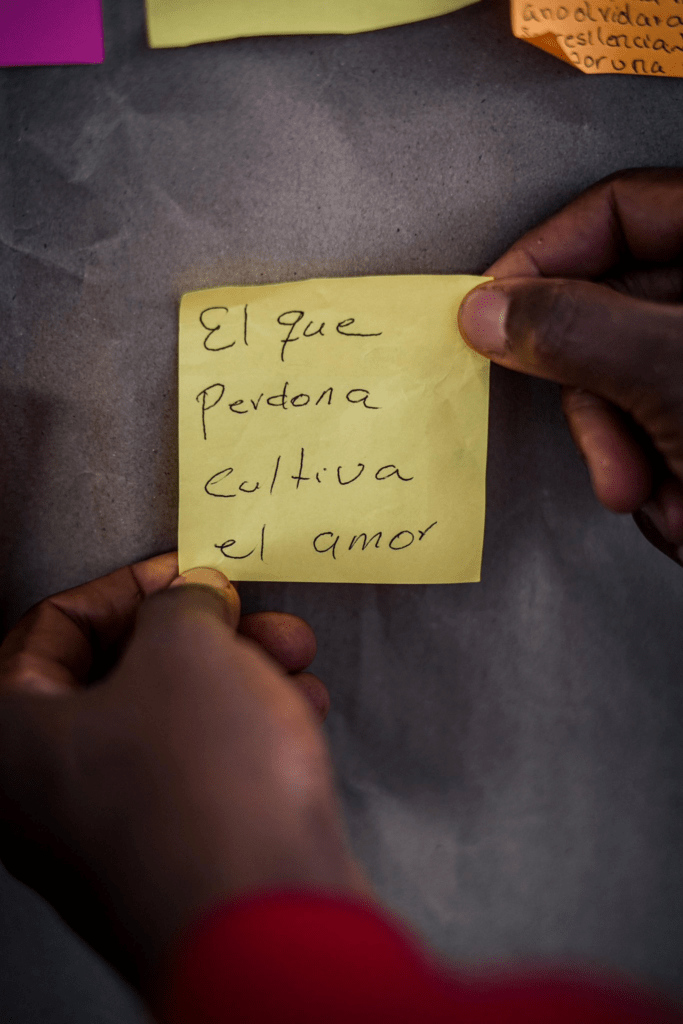 ano olvidara
resilencia
por una
El que
perdona
cultiva
el amor